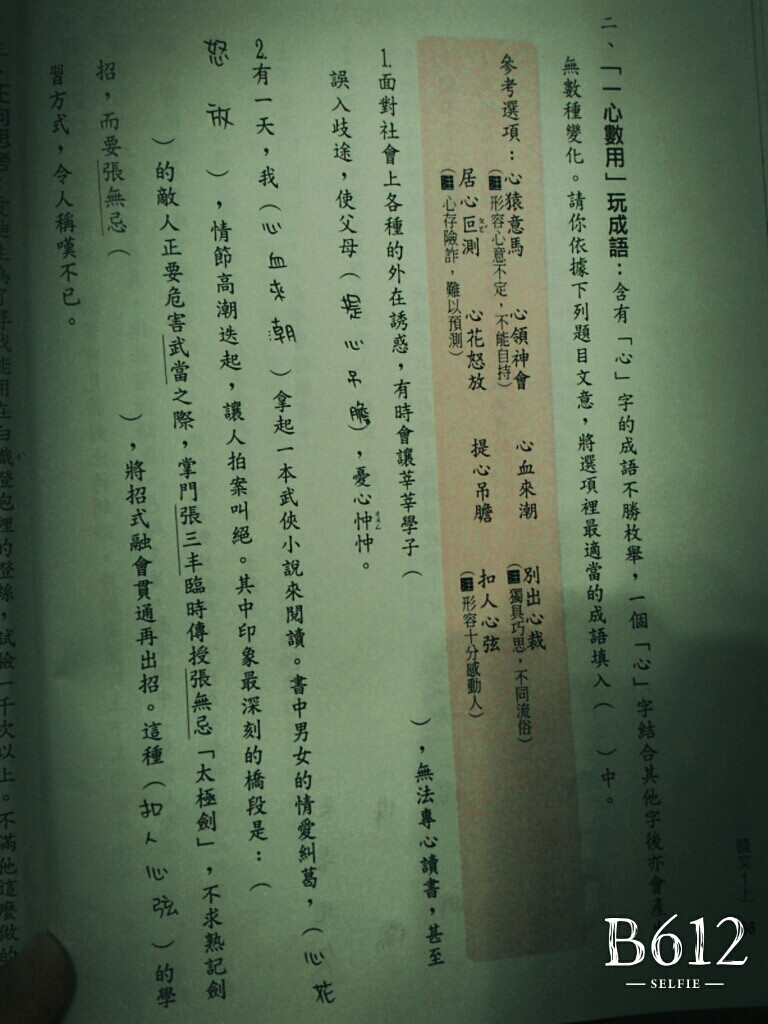 二、「一心數用」玩成語：含有「心」字的成語不勝枚舉，一個「心」字結合其他字後亦會產
無數種變化。請你依據下列題目文意，將選項裡最適當的成語填入（　）中。
參考選項：心猿意馬　心領神會　心血來潮　別出心裁
（註形容心意不定，不能自持）（註獨具巧思，不同流俗）
居心叵測　心花怒放　提心吊膽　扣人心弦
（註心存險詐，難以預測）（註形容十分感動人）
1.面對社會上各種的外在誘惑，有時會讓莘莘學子（　），無法專心讀書，甚至
誤入歧途，使父母（提心吊膽），憂心忡忡。
2.有一天，我（心血來潮）拿起一本武俠小說來閱讀。書中男女的情愛糾葛，（心花
怒放），情節高潮迭起，讓人拍案叫絕。其中印象最深刻的橋段是：（
）的敵人正要危害武當之際，掌門張三丰臨時傳授張無忌「太極劍」，不求熟記劍
招，而要張無忌（　），將招式融會貫通再出招。這種（扣人心弦）的學
習方式，令人稱嘆不已。
國文1上
B612
SELFIE